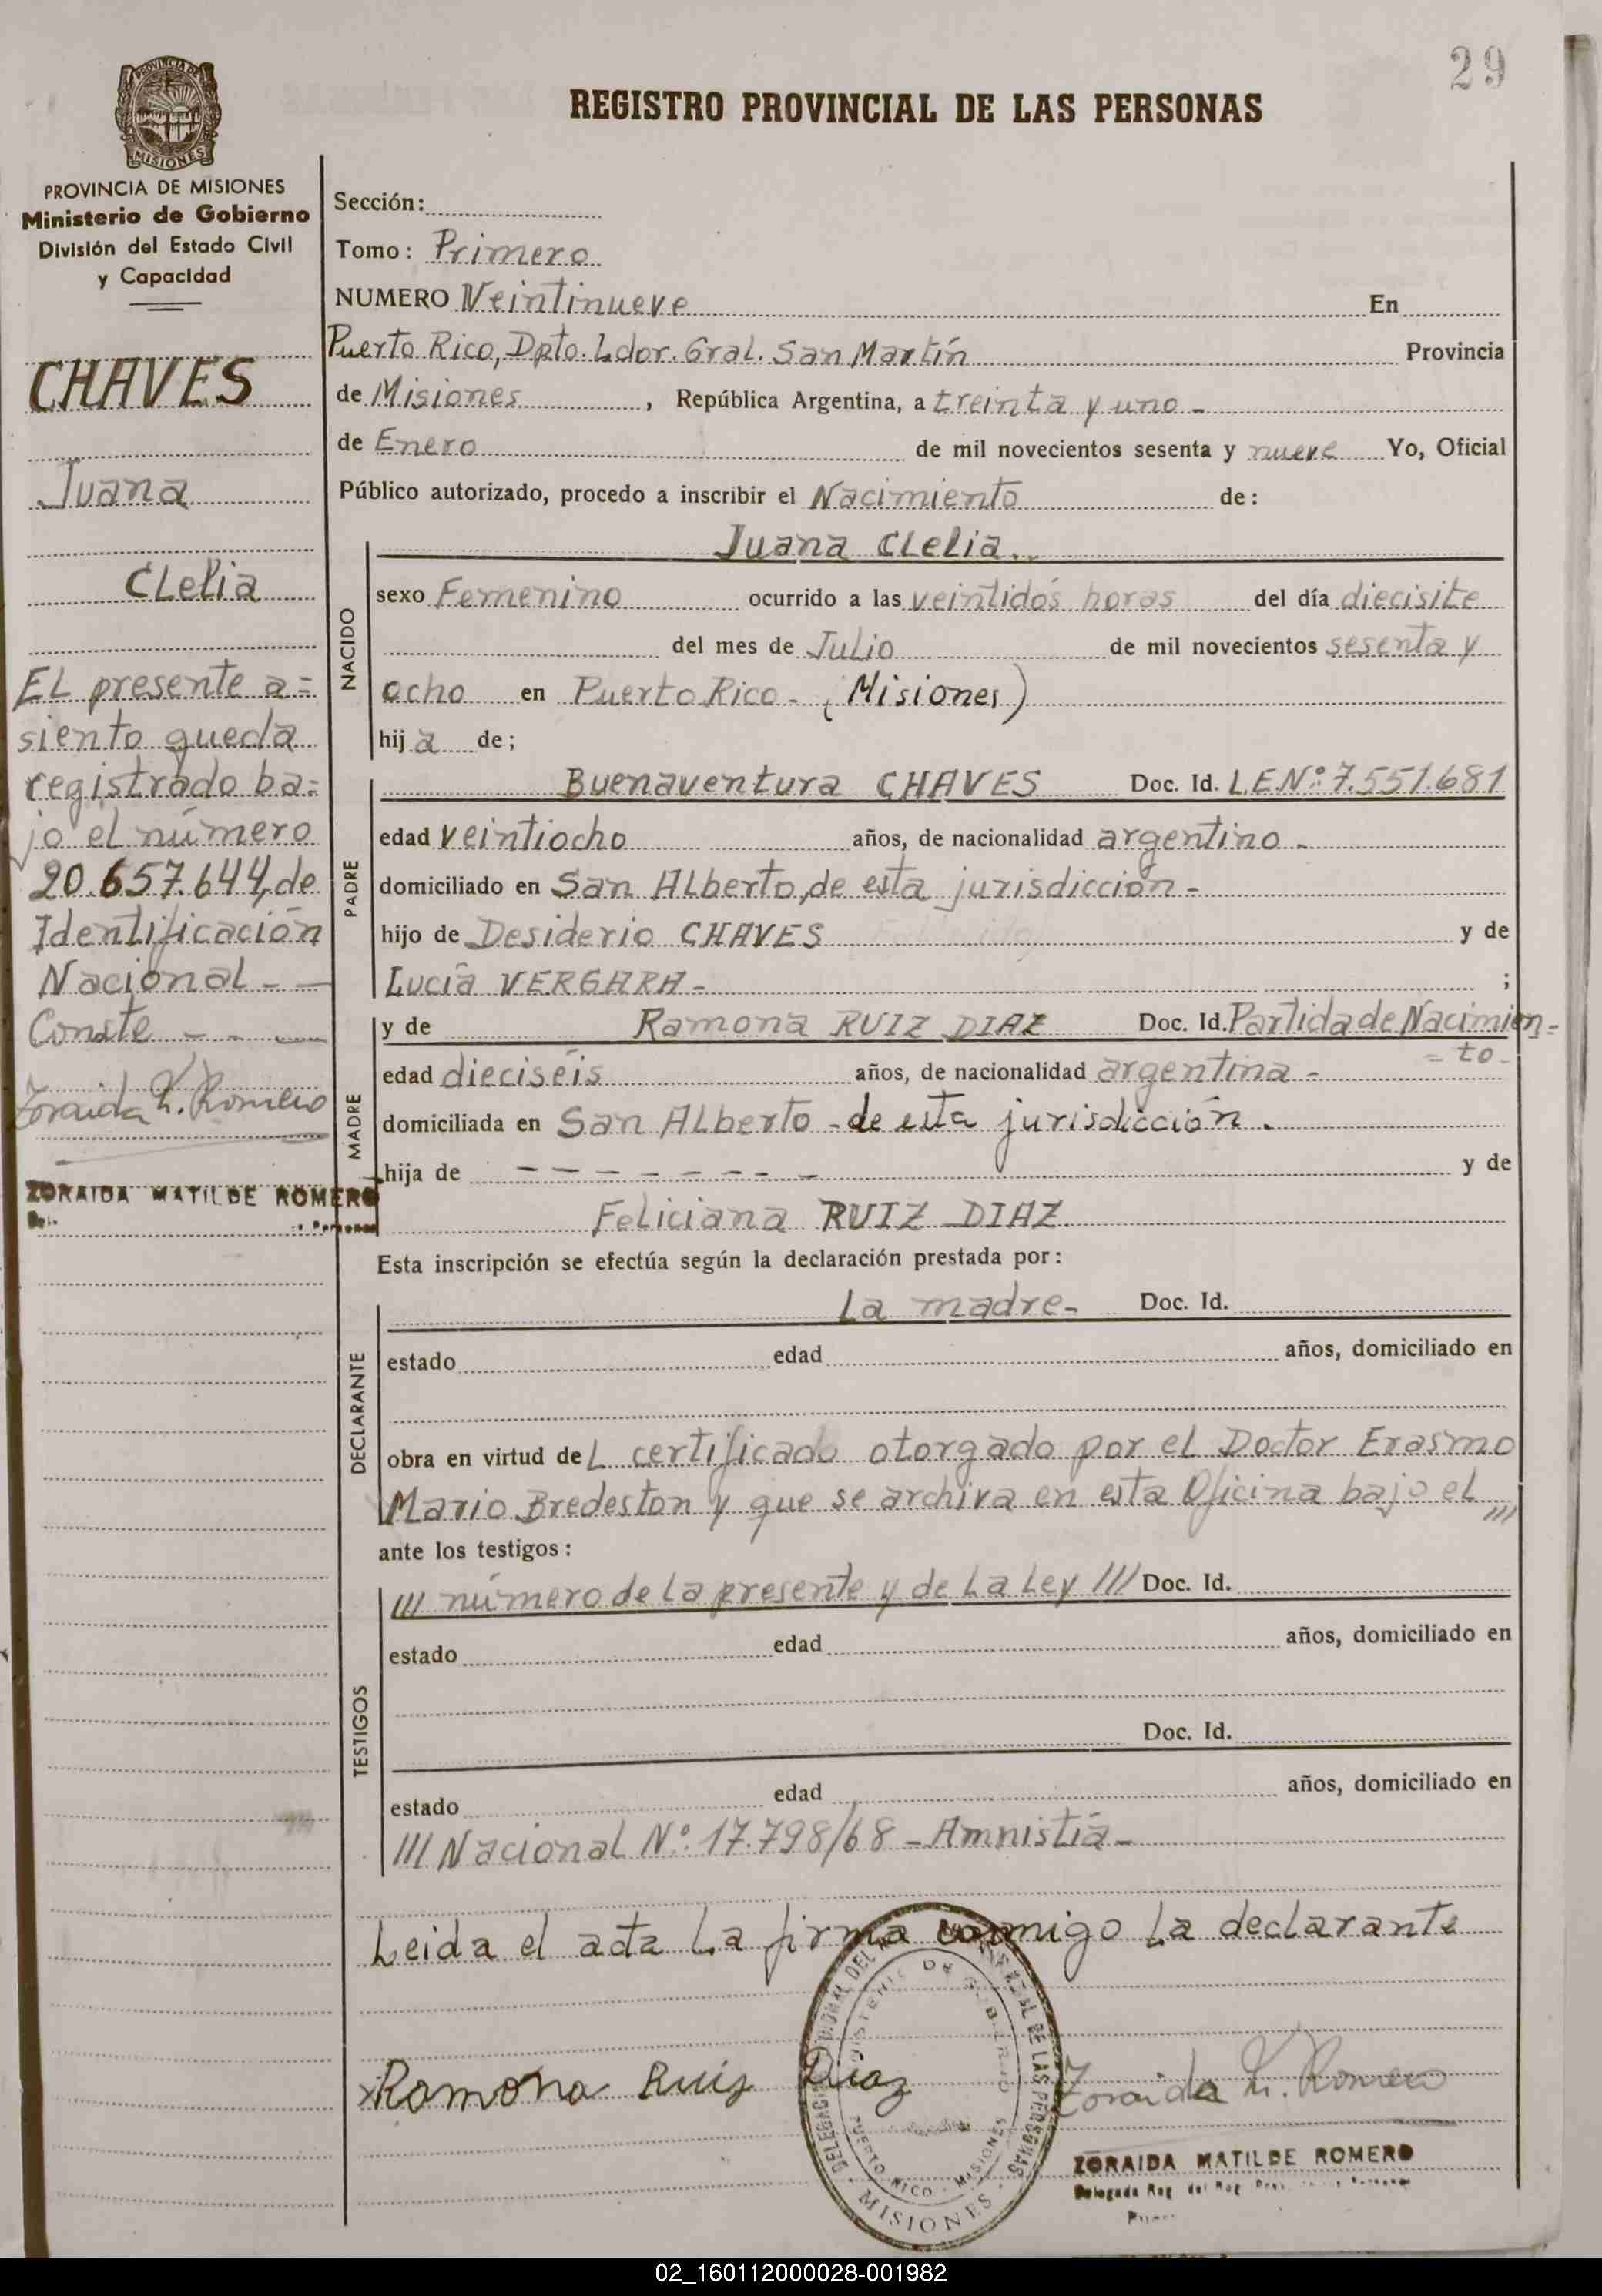 29
REGISTRO PROVINCIAL DE LAS PERSONAS
PROVINCIA DE MISIONES
MISIONES
PROVINCIA DE MISIONES
Ministerio de Gobierno
División del Estado Civil
y Capacidad
CHAVES
Juana
CLelia
EL presente a=
siento queda
registrado ba=
jo el número
20.657.644, de
Identificación
Nacional - —
Conste - - —
Zoraida M. Romero
ZORAIDA MATILDE ROMERO
Sección:
Tomo: Primero
NUMERO Veintinueve En
Puerto Rico, Dpto. Ldor. Gral. San Martín Provincia
de Misiones, República Argentina, a treinta y uno -
de Enero de mil novecientos sesenta y nueve Yo, Oficial
Público autorizado, procedo a inscribir el Nacimiento de:
Juana CLelia..
NACIDO
sexo Femenino ocurrido a las veintidós horas del día diecisite
del mes de Julio de mil novecientos sesenta y
ocho en Puerto Rico - (Misiones)
hija de;
PADRE
Buenaventura CHAVES Doc. Id. L.E.Nº: 7.551.681
edad veintiocho años, de nacionalidad argentino -
domiciliado en San ALberto, de esta jurisdicción -
hijo de Desiderio CHAVES y de
Lucía VERGARA - ;
MADRE
y de Ramona RUIZ DIAZ Doc. Id. Partida de Nacimien=
= to -
edad dieciséis años, de nacionalidad argentina -
domiciliada en San ALberto - de esta jurisdicción.
hija de — — — — — — — — y de
Feliciana RUIZ DIAZ
Esta inscripción se efectúa según la declaración prestada por:
DECLARANTE
La madre- Doc. Id.
estado edad años, domiciliado en
obra en virtud deL certificado otorgado por el Doctor Erasmo
Mario Bredeston y que se archiva en esta Oficina bajo el ///
ante los testigos:
TESTIGOS
/// número de La presente y de La Ley /// Doc. Id.
estado edad años, domiciliado en
Doc. Id.
estado edad años, domiciliado en
/// Nacional Nº: 17.798/68 - Amnistía -
Leida el acta La firma conmigo La declarante
Ramona Ruiz Diaz
Zoraida M. Romero
DE LAS PERSONAS
PUERTO RICO - MISIONES
MISIONES
ZORAIDA MATILDE ROMERO
Delegada Reg. del Reg.
02_160112000028-001982